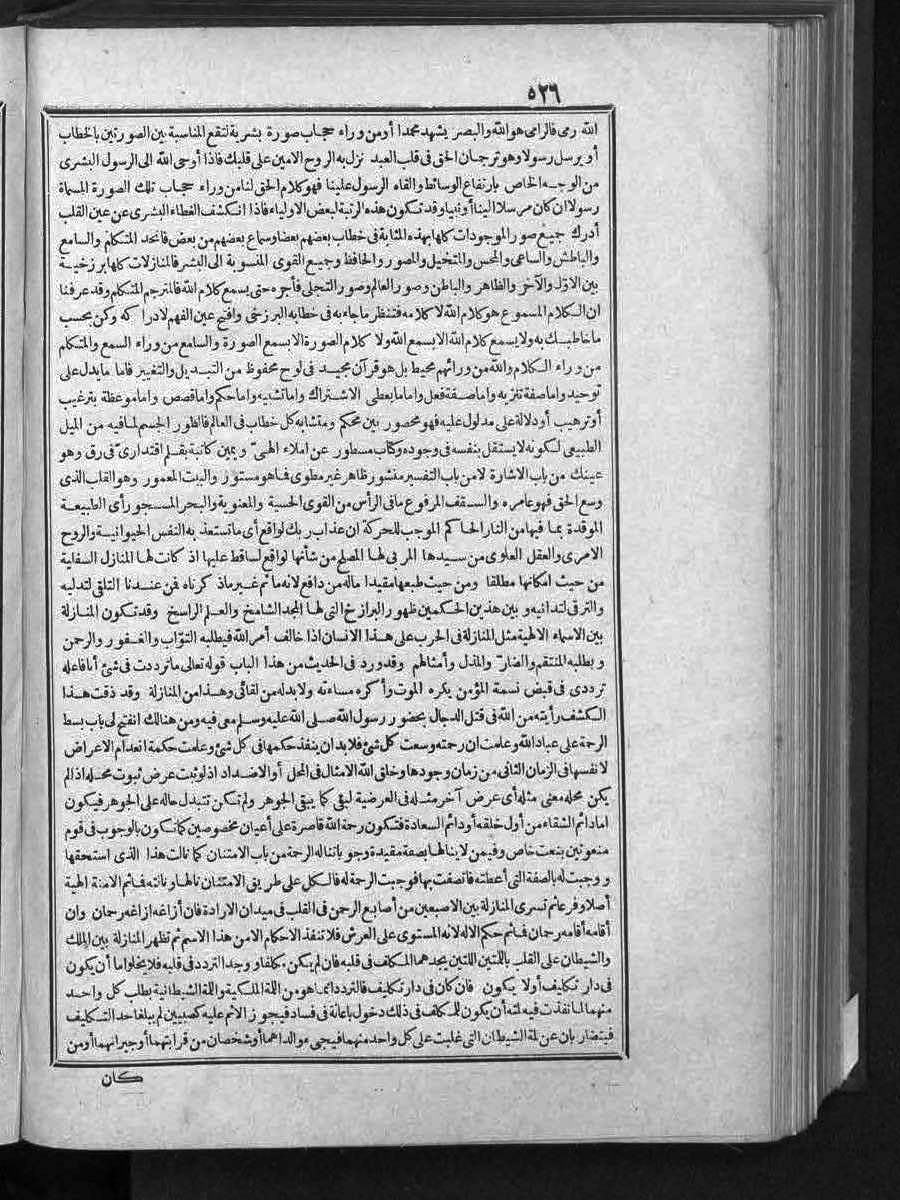 ٥٢٦
الله رمى فالرامى هو الله والبصر يشهد محمدا أو من وراء حجاب صورة بشرية لتقع المناسبة بين الصورتين بالخطاب
أو يرسل رسولا وهو ترجمان الحق فى قلب العبد نزل به الروح الامين على قلبك فاذا أوحى الله الى الرسول البشرى
من الوجه الخاص بارتفاع الوسائط وألقاه الرسول علينا فهو كلام الحق لنا من وراء حجاب تلك الصورة المسماة
رسولا ان كان مرسلا الينا أو نبيا وقد تكون هذه الرتبة لبعض الاولياء فاذا انكشف الغطاء البشرى عن عين القلب
أدرك جميع صور الموجودات كلها بهذه المثابة فى خطاب بعضهم بعضا وسماع بعضهم من بعض فاتحد المتكلم والسامع
والباطش والساعى والمحس والمتخيل والمصور والحافظ وجميع القوى المنسوبة الى البشر فالمنازلات كلها برزخية
بين الاول والآخر والظاهر والباطن وصور العالم وصور التجلى فأجره حتى يسمع كلام الله فالمترجم المتكلم وقد عرفنا
ان الكلام المسموع هو كلام الله لا كلامه فتنظر ما جاء به فى خطابه البرزخى وافتح عين الفهم لادراكه وكن بحسب
ما خاطبك به ولا يسمع كلام الله الا بسمع الله ولا كلام الصورة الا بسمع الصورة والسامع من وراء السمع والمتكلم
من وراء الكلام والله من ورائهم محيط بل هو قرآن مجيد فى لوح محفوظ من التبديل والتغيير فاما ما يدل على
توحيد واما صفة تنزيه واما صفة فعل واما ما يعطى الاشتراك واما تشبيه واما حكم واما قصص واما موعظة بترغيب
أو ترهيب أو دلالة على مدلول عليه فهو محصور بين محكم ومتشابه كل خطاب فى العالم فالطور الجسم لما فيه من الميل
الطبيعى لكونه لا يستقل بنفسه فى وجوده وكتاب مسطور عن املاء الهىّ ويمين كاتبة بقلم اقتدارىّ فى رق وهو
عينك من باب الاشارة لا من باب التفسير منشور ظاهر غير مطوى فما هو مستور والبيت المعمور وهو القلب الذى
وسع الحق فهو عامره والسقف المرفوع ما فى الرأس من القوى الحسية والمعنوية والبحر المسجور أى الطبيعة
الموقدة بما فيها من النار الحاكم الموجب للحركة ان عذاب ربك لواقع أى ما تستعذبه النفس الحيوانية والروح
الامرى والعقل العلوى من سيدها المربى لها المصلح من شأنها لواقع لساقط عليها اذ كانت لها المنازل السفلية
من حيث امكانها مطلقا ومن حيث طبعها مقيدا ماله من دافع لانه ما ثم غير ما ذكرناه فمن عندنا التلقى لتدليه
والترقى لتدانيه وبين هذين الحكمين ظهور البرازخ التى لها المجد الشامخ والعلم الراسخ وقد تكون المنازلة
بين الاسماء الالهية مثل المنازلة فى الحرب على هذا الانسان اذا خالف أمر الله فيطلبه التوّاب والغفور والرحمن
ويطلبه المنتقم والضارّ والمذل وأمثالهم وقد ورد فى الحديث من هذا الباب قوله تعالى ما ترددت فى شئ أنا فاعله
ترددى فى قبض نسمة المؤمن يكره الموت وأكره مساءته ولا بد له من لقائى وهذا من المنازلة وقد ذقت هذا
الكشف رأيته من الله فى قتل الدجال بحضور رسول الله صلى الله عليه وسلم معى فيه ومن هنالك انفتح لى باب بسط
الرحمة على عباد الله وعلمت ان رحمته وسعت كل شئ فلا بد ان ينفذ حكمها فى كل شئ وعلمت حكمة انعدام الاعراض
لانفسها فى الزمان الثانى من زمان وجودها وخلق الله الامثال فى المحل أو الاضداد اذ لو ثبت عرض ثبوت محله اذ الم
يكن محله معنى مثله أى عرض آخر مثله فى العرضية لبقى كما يبقى الجوهر ولم تكن تتبدل حاله على الجوهر فيكون
اما دائم الشقاء من أول خلقه أو دائم السعادة فتكون رحمة الله قاصرة على أعيان مخصوصين كما تكون بالوجوب فى قوم
منعوتين بنعت خاص وفيمن لا ينالها بصفة مقيدة وجوبا تناله الرحمة من باب الامتنان كما نالت هذا الذى استحقها
ووجبت له بالصفة التى أعطته فاتصفت بها فوجبت الرحمة له فالكل على طريق الامتنان نالها ونالته فما ثم الا منة الهية
أصلا وفرعا ثم تسرى المنازلة بين الاصبعين من أصابع الرحمن فى القلب فى ميدان الارادة فان أزاغه أزاغه رحمان وان
أقامه أقامه رحمان فما ثم حكم الا له لانه المستوى على العرش فلا تنفذ الاحكام الا من هذا الاسم ثم تظهر المنازلة بين الملك
والشيطان على القلب باللمتين اللتين يجدهما المكلف فى قلبه فان لم يكن مكلفا ووجد التردد فى قلبه فلا يخلو اما أن يكون
فى دار تكليف أو لا يكون فان كان فى دار تكليف فالتردد انما هو من اللمة الملكية واللمة الشيطانية يطلب كل واحد
منهما لما نفذت فيه لمته أن يكون للمكلف فى ذلك دخول باعانة فى فساد فيجوز الاثم عليه كصبيين لم يبلغا حد التكليف
فيتضاربان عن لمة الشيطان التى غلبت على كل واحد منهما فيجى موالداهما أو شخصان من قرابتهما أو جيرانهما أو من
كان